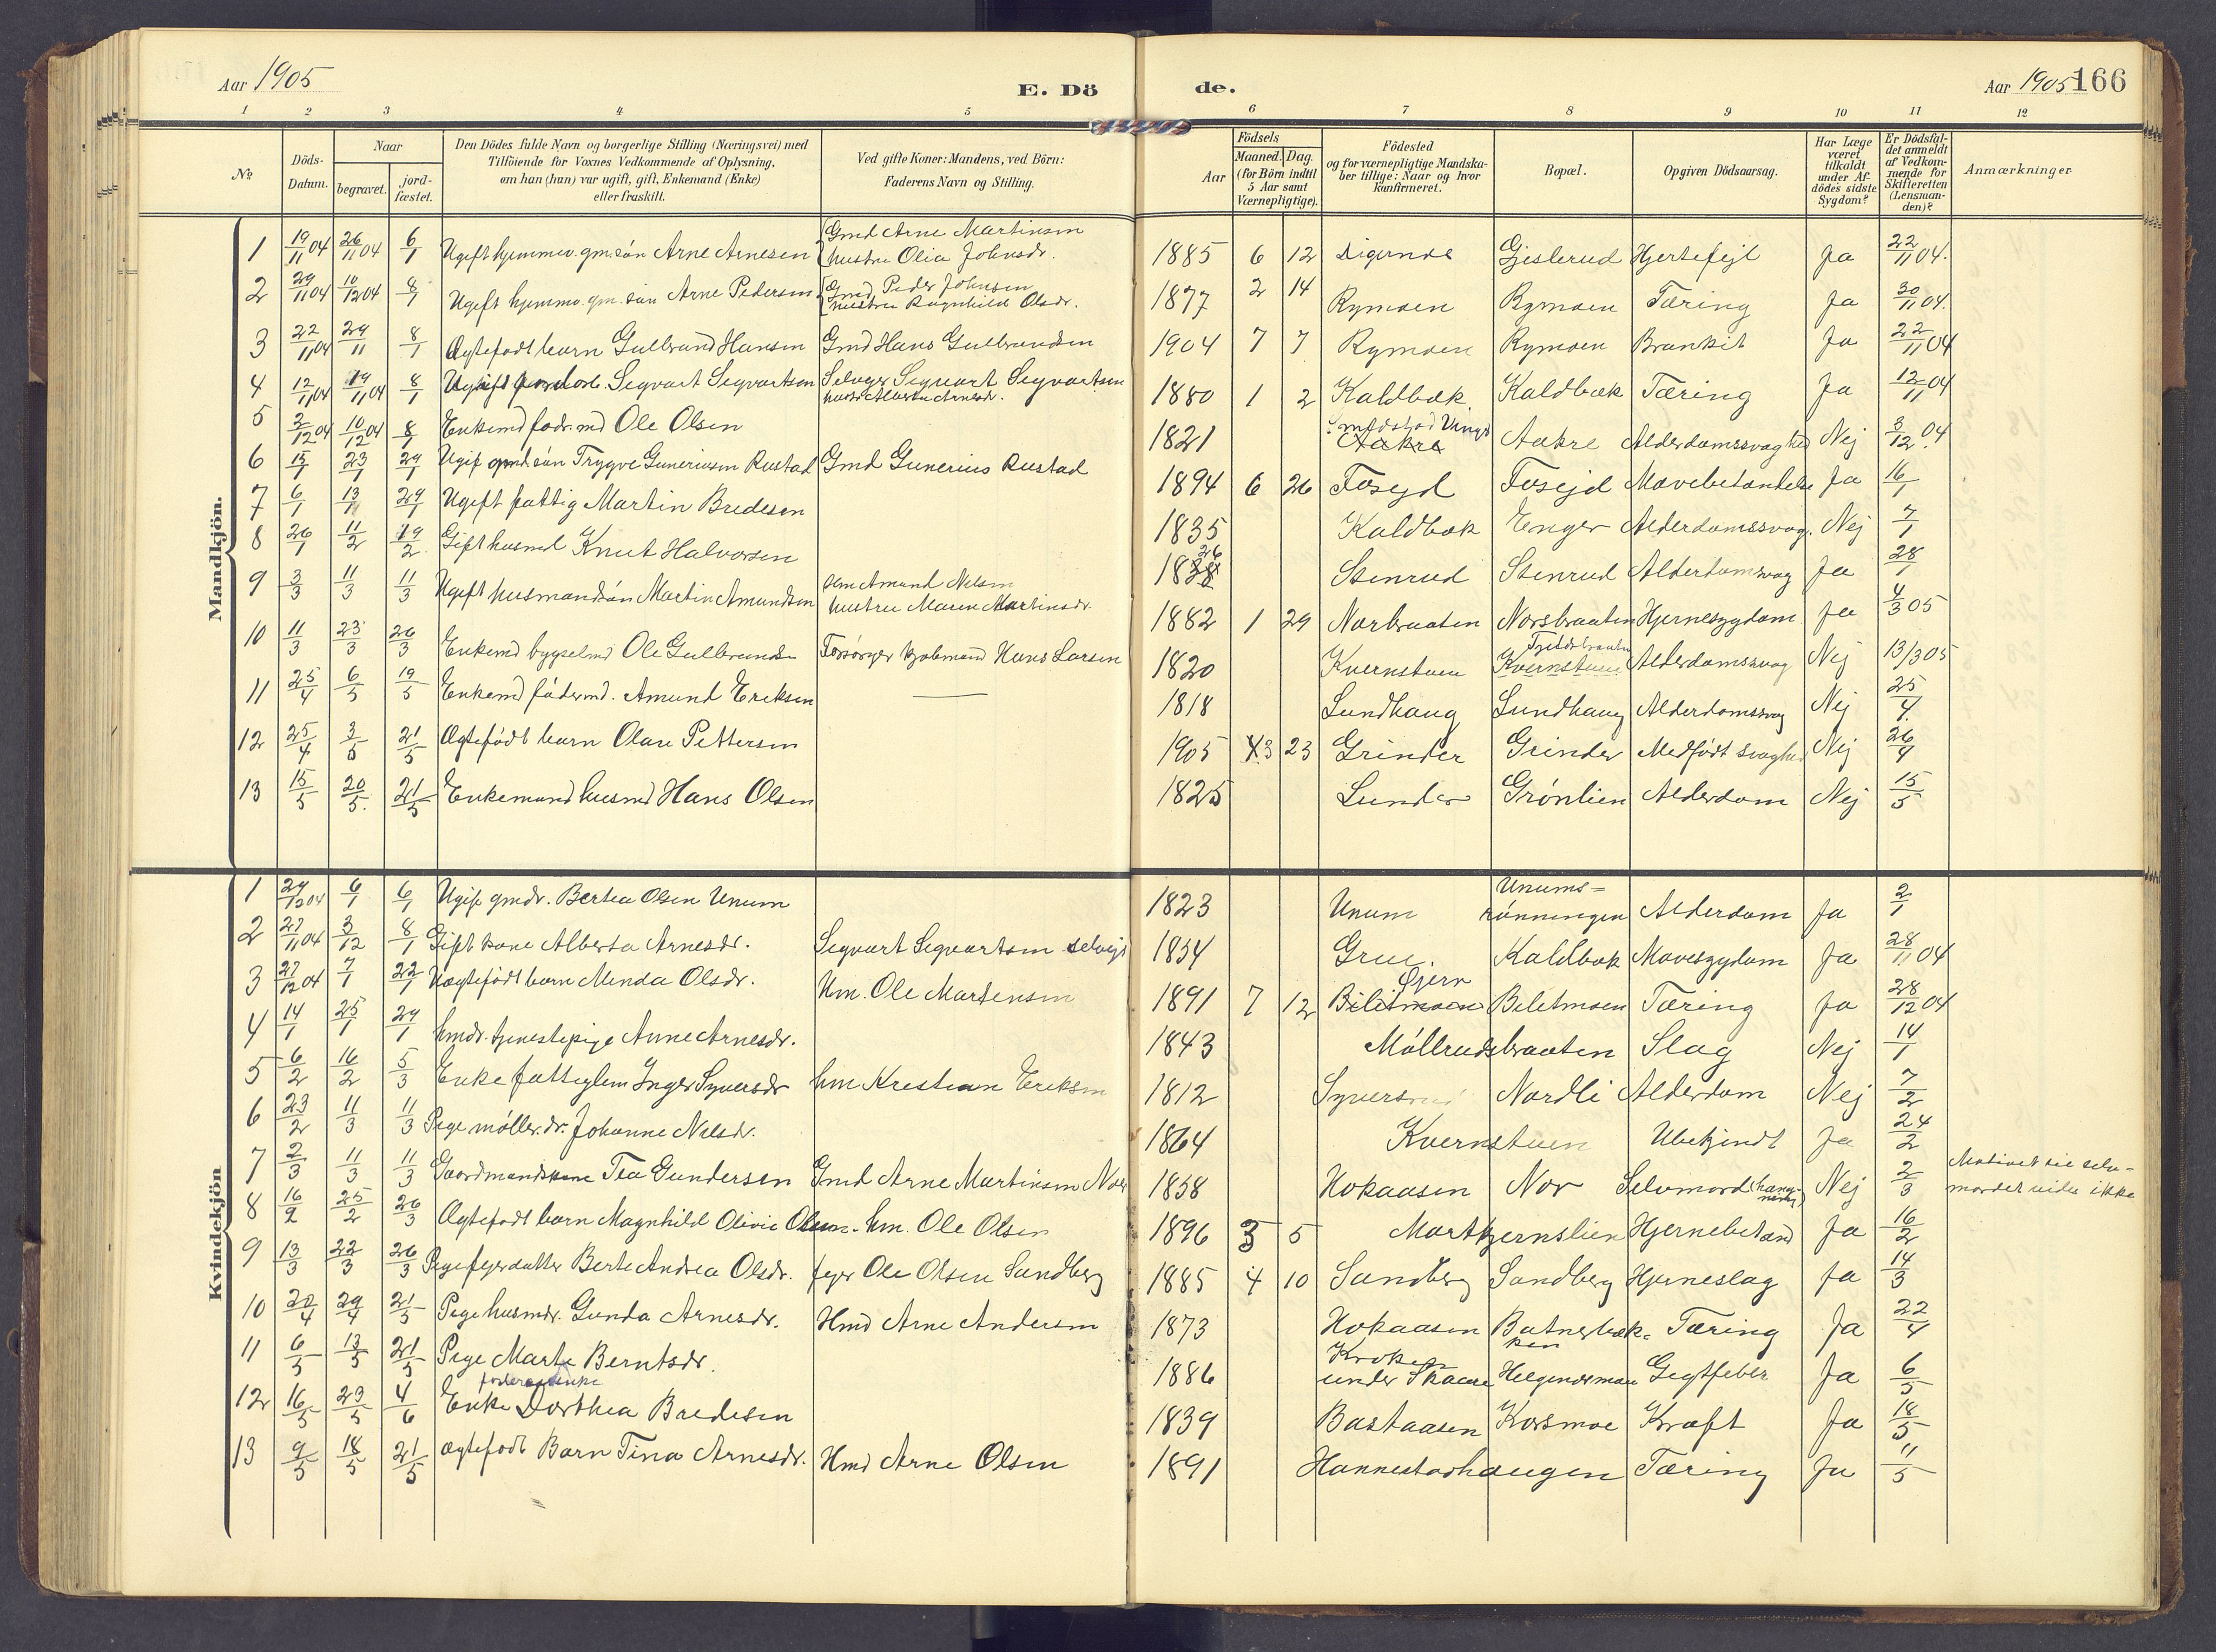 Aar 1905
E. Dö de.
Aar 1905 166
1 2 3 4 5 6 7 8 9 10 11 12
№
Döds-Datum.
Naar
begravet.
jord-fæstet.
Den Dödes fulde Navn og borgerlige Stilling (Næringsvei) med
Tilföiende for Voxnes Vedkommende af Oplysning,
om han (hun) var ugift, gift, Enkemand (Enke)
eller fraskilt.
Ved gifte Koner: Mandens, ved Börn:
Faderens Navn og Stilling.
Födsels
Aar
Maaned. Dag.
(for Börn indtil
5 Aar samt
Værnepligtige).
Födested
og for værnepligtige Mandska-
ber tillige: Naar og hvor
konfirmeret.
Bopæl.
Opgiven Dödsaarsag.
Har Læge
været
tilkaldt
under Af-
dödes sidste
Sygdom?
Er Dödsfal-
det anmeldt
af Vedkom-
mende for
Skifteretten
(Lensman-
den)?
Anmærkninger
Mandkjön.
1 19/11 04 26/11 04 6/1 Ugift hjemmev. gm. sön Arne Arnesen Gmd Arne Martinsen hustru Olia Johnsdr. 1885 6 12 Digernes Gjeslerud Hjertefejl Ja 22/11 04.
2 29/11 04 10/12 04 8/1 Ugift hjemmv. gm. sön Arne Pedersen Gmd Peder Johnsen hustru Ragnhild Olsdr. 1877 2 14 Rymoen Rymoen Tæring Ja 30/11 04.
3 22/11 04 29/11 8/1 Ægtefødt barn Gulbrand Hansen Gmd Hans Gulbrandsen 1904 7 7 Rymoen Rymoen Brankit Ja 22/11 04
4 12/11 04 19/11 04 8/1 Ugift Segvart Segvartsen Selveger Segvart Segvartsen hustr Alberte Arnesdr. 1880 1 2 Kaldbæk Kaldbæk Tæring Ja 12/11 04
5 3/12 04 10/12 04 8/1 Enkemd fødr.md Ole Olsen 1821 Aakre Aakre Alderdomssvaghed Nej 3/12 04
6 15/1 23/1 29/1 Ugift gmd. sön Trygve Guneriusen Rustad Gmd Gunerius Rustad 1894 6 26 Fosejd Fosejd Mavebetændelse Ja 16/1
7 6/1 13/1 29/1 Ugift fattig Martin Bredesen 1835 Kaldbæk Enger Alderdomssvag. Nej 7/1
8 26/1 11/2 19/2 Gift husmd Knut Halvorsen 1826 Stenrud Stenrud Alderdomsvag Ja 28/1
9 3/3 11/3 11/3 Ugift husmandssön Martin Amundsen Hm Amund Nilsen hustru Maren Martinsdr. 1882 1 29 Norbraaten Norsbraaten Hjernesygdom Ja 4/3 05
10 11/3 23/3 26/3 Enkemd bygselmd Ole Gulbrandsen Forsörger Hans Larsen 1820 Kvernstuen Kvernstuen Alderdomssvag Nej 13/3 05
11 25/4 6/5 19/5 Enkemd födermd. Amund Eriksen — 1818 Lundhaug Lundhaug Alderdomssvag Nej 25/4
12 25/4 3/5 21/5 Ægtefödt barn Olav Pettersen 1905 3 23 Grinder Grinder Medfödt svaghed Nej 26/4
13 15/5 20/5 21/5 Enkemand husmd Hans Olsen 1825 Lunder Grönlien Alderdom Nej 15/5
Kvindekjön
1 29/12 04 6/1 6/1 Ugift gmdr. Bertea Olsen Unum 1823 Unum Unums=rönningen Alderdom Ja 2/1
2 27/11 04 3/12 8/1 Gift kone Alberta Arnesdr. Segvart Segvartsen selvejer 1834 Grue. Kaldbæk Mavesygdom Ja 28/11 04
3 27/12 04 7/1 22/1 Uægtefödt barn Menda Olsdr. Hm. Ole Martensen 1891 7 12 Öjern Biletmoen Biletmoen Tæring Ja 28/12 04
4 14/1 25/1 29/1 hmdr. tjenestepige Anne Arnesdr. 1843 Möllrudsbraaten Slag Nej 14/1
5 6/2 16/2 5/3 Enke fattiglem Inger Syversdr hm Kristian Eriksen 1812 Syversrud Nordli Alderdom Nej 7/2
6 23/2 11/3 11/3 Pige möller.dr. Johanne Nilsdr. 1864 Kvernstuen Ubekjendt Ja 24/2
7 2/3 11/3 11/3 Gaardmandskone Tea Gundersen Gmd Arne Martinsen Nor 1858 Hokaasen Nor Selvmord (hængning) Nej 2/3 Motivet til selv-mordet vides ikke
8 16/2 25/2 26/3 Ægtefödt barn Magnhild Olivia Olsen hm. Ole Olsen 1896 3 5 Mortkjernslien Hjernebetænd Ja 16/2
9 13/3 22/3 26/3 Pige fejerdatter Berte Andrea Olsdr. fejer Ole Olsen Sandberg 1885 4 10 Sandberg Sandberg Hjerneslag Ja 14/3
10 20/4 29/4 21/5 Pige husmdr. Gunda Arnesdr. Hmd Arne Andersen 1873 Hokaasen Batnerbækken Tæring Ja 22/4
11 6/5 13/5 21/5 Pige Marte Berntsdr. 1886 Kroken under Skaare Helgendsmoen Gigtfeber Ja 6/5
12 16/5 29/5 4/6 Enke Dorthea Bredesen 1839 Bastaasen Korsmoe Kræft Ja 18/5
13 9/5 18/5 21/5 ægtefödt Barn Tina Arnesdr. Hmd Arne Olsen 1891 Hannestadhaugen Tæring Ja 11/5